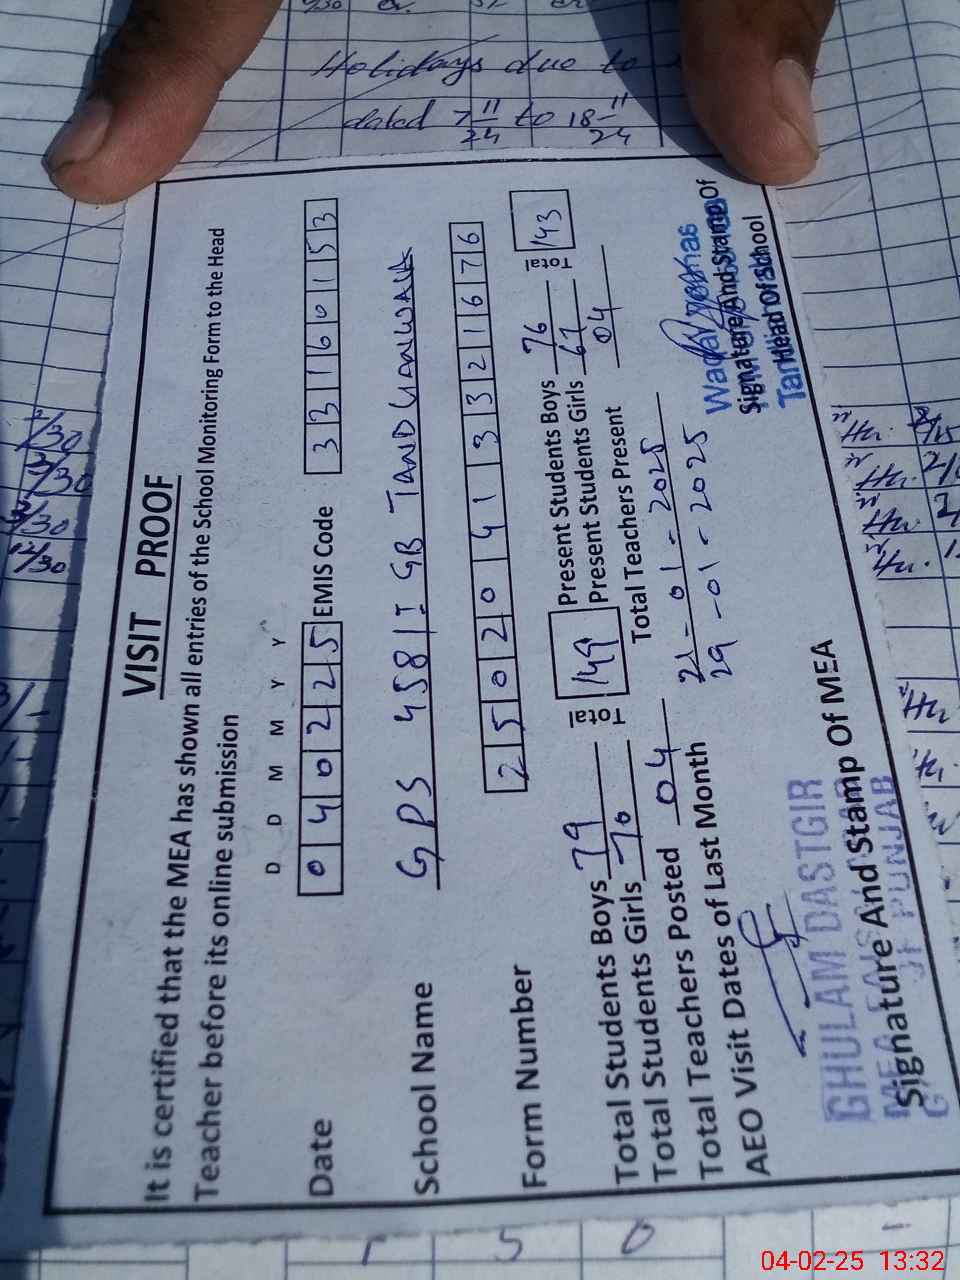 Holidays due to
dated 7-11/24 to 18-11/24
VISIT PROOF
It is certified that the MEA has shown all entries of the School Monitoring Form to the Head
Teacher before its online submission
D D M M Y Y
Date 040225 EMIS Code 33160153
School Name GPS 458/I GB TANDLIANWALA
Form Number 25020419321676
Total Students Boys 79 Total 149 Present Students Boys 76 Total 143
Total Students Girls 70 Present Students Girls 67
Total Teachers Posted 04 Total Teachers Present 04
AEO Visit Dates of Last Month 21-01-2025
29-01-2025
GHULAM DASTGIR
Signature And Stamp Of MEA
OF PUNJAB
Signature And Stamp Of
Head Of School
04-02-25 13:32